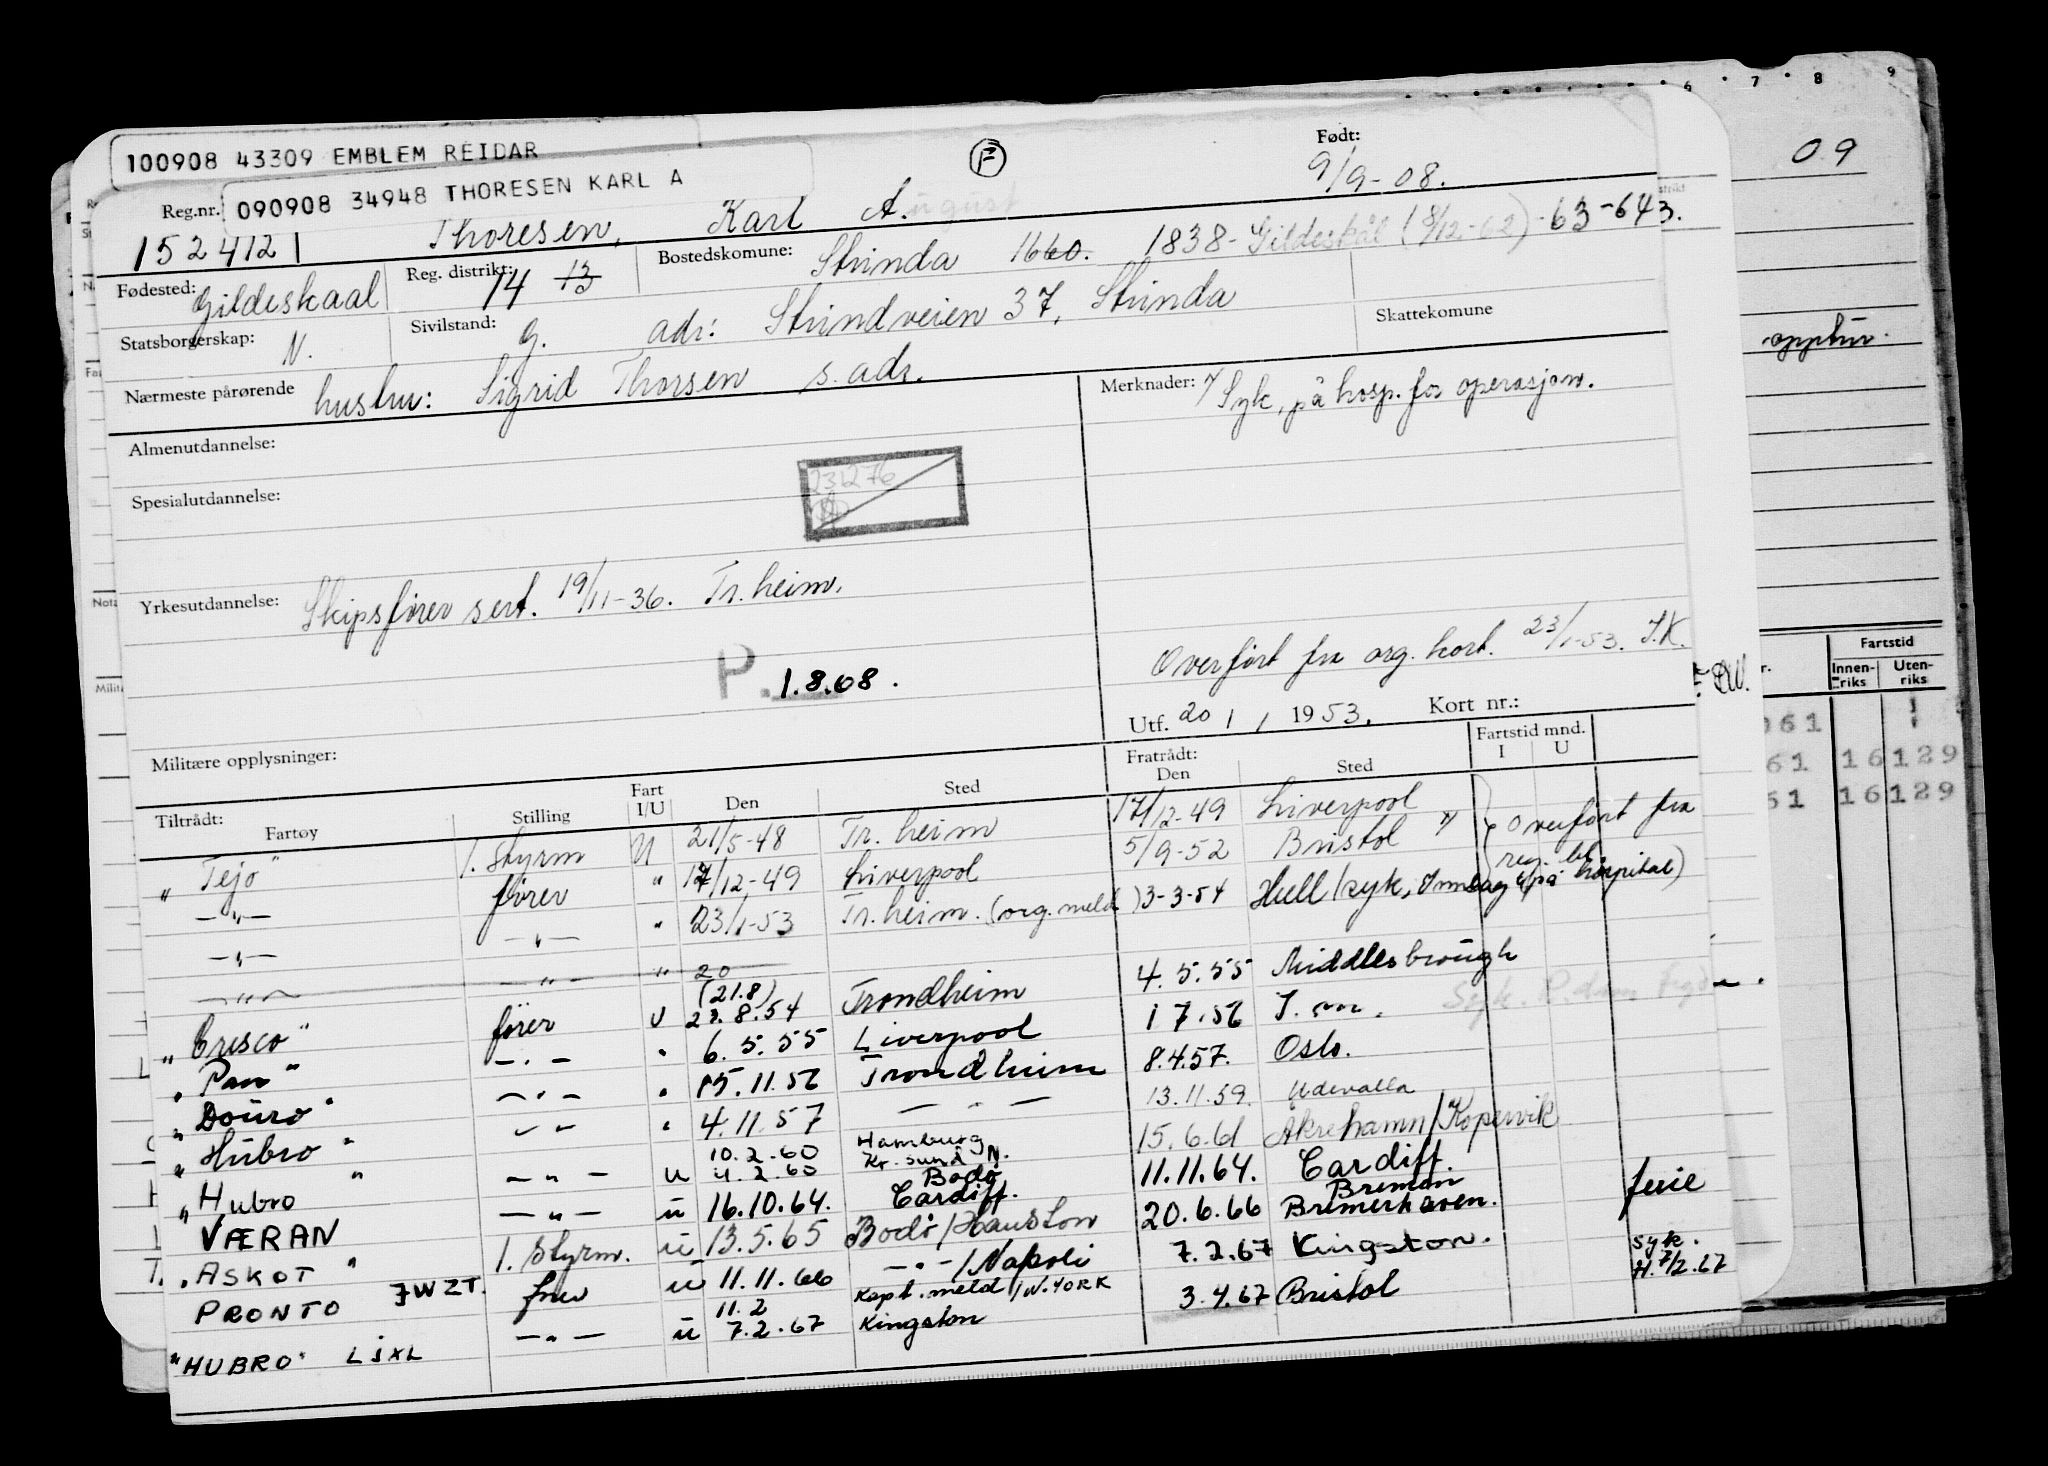 100908 43309 EMBLEM REIDAR
090908 34948 THORESEN KARL A
F
Født:
9/9-08.
Reg.nr.
1524121
Thoresen, Karl August
Fødested: Gildeskaal
Reg. distrikt: 14 13
Bostedskomune: Strinda 1660. 1838- Gildeskål (8/12-62) -63-643.
Statsborgerskap: N.
Sivilstand: g.
adr: Strindveien 37, Strinda
Skattekomune
Nærmeste pårørende hustru: Sigrid Thorsen s. adr.
Merknader: Syk, på hosp. for operasjon.
Almenutdannelse:
Spesialutdannelse:
231276
Yrkesutdannelse: Skipsfører sert. 19/11-36. Tr.heim.
P. 1.8.68.
Overført fra org. kort. 23/1-53. S.K.
Utf. 20/1 1953. Kort nr.:
Militære opplysninger:
Tiltrådt: Fartøy Stilling Fart I/U Den Sted Fratrådt: Den Sted Fartstid mnd. I U
"Tejo" 1. styrm U 21/5-48 Tr. heim 17/12-49 Liverpool } Overført fra
—"— fører " 17/12-49 Liverpool 5/9-52 Bristol reg. bl.
—"— —"— " 23/1-53 Tr.heim. (org. meld) 3-3-54 Hull (syk, på hospital)
—"— —"— " 20
(21.8)
"Crisco" fører U 23.8.54 Trondheim 4.5.55 Middlesbrough
"Pan" —"— " 6.5.55 Liverpool 1 7.56 S. m.
"Douro" —"— " 15.11.56 Trondheim 8.4.57. Oslo.
"Hubro" —"— " 4.11.57 —"— 13.11.59. Udevalla
10.2.60 Hamburg
"Hubro" —"— U 4.2.60 Kr.sund N. 15.6.61 Åkrehamn/Kopervik
Bodø
VÆRAN —"— U 16.10.64. Cardiff. 11.11.64. Cardiff.
Bremen
"ASKOT" 1. Styrm. U 13.5.65 Bodø/Hauston 20.6.66 Bremerhaven. ferie
PRONTO JWZT. frer U 11.11.66 —"—/Napoli 7.2.67 Kingston. syk. H. 7/2.67
11.2 Kapt. meld/N.YORK
"HUBRO" LJXL —"— U 7.2.67 Kingston 3.4.67 Bristol
6 7 8 9
09
opptur.
Fartstid
Innen-riks Uten-riks
061
61 16 129
61 16 129